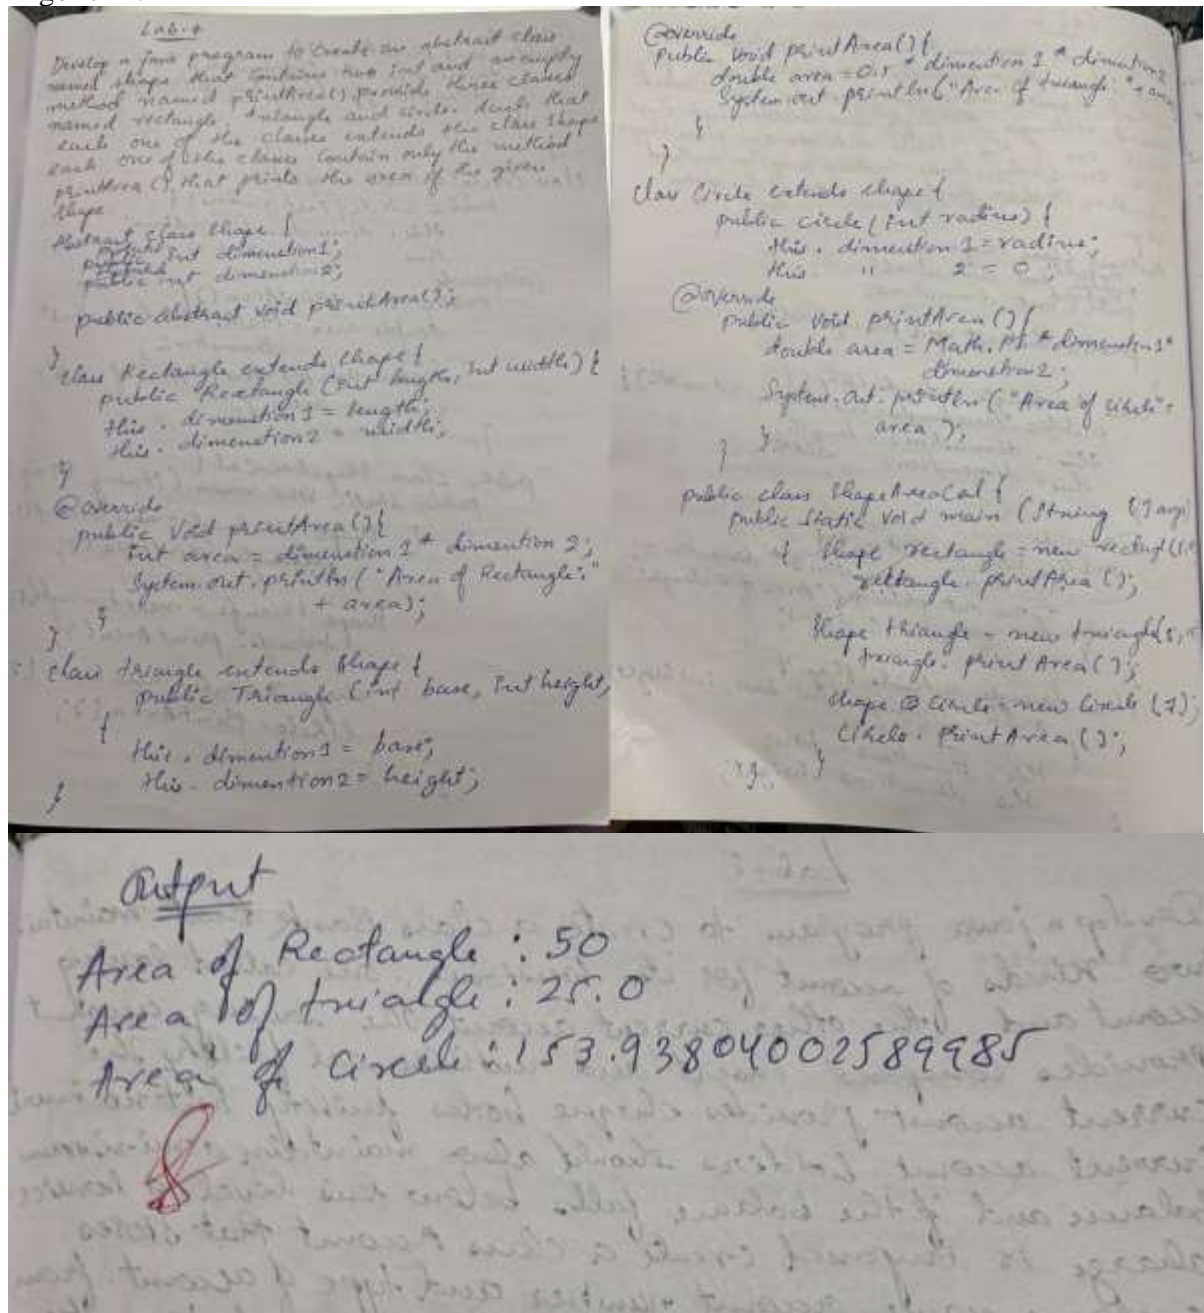 Lab-4
Develop a java program to create an abstract class
named shape that contains two int and an empty
method named printArea(). provide three classes
named rectangle, triangle and circle. such that
each one of the classes extends the class shape
each one of the classes contain only the method
printArea() that prints the area of the given
shape
Abstract class shape {
int dimenetion1;
public int dimenetion2;
public abstract void printArea();
}
class Rectangle extends shape {
public Rectangle (int length, int width) {
this. dimenetion1 = length;
this. dimenetion2 = width;
}
@override
public void printArea(){
int area = dimention 1 * dimention 2;
System.out.println ("Area of Rectangle:"
+ area);
}
}
class triangle extends shape {
public Triangle (int base, int height,
{
this. dimention1 = base;
this. dimention2 = height;
}
@override
public void printArea(){
double area = 0.5 * dimention 1 * dimention2
System.out.println("Area of triangle: "+ area
}
}
class Circle extends shape {
public circle (int radius) {
this. dimention 1 = radius;
this. " 2 = 0;
@override
public void printArea () {
double area = Math.PI * dimenetion1*
dimenetion2;
System.out.println ("Area of
area );
}
}
public class ShapeAreaCal {
public static void main (String [] args)
{ shape rectangle = new
rectangle. printArea ();
shape triangle = new triangle(5,
triangle. print Area ();
shape circle = new circle (7);
Print Area ();
}
Output
Area of Rectangle : 50
Area of triangle : 25.0
Area of circle : 153.93804002589985